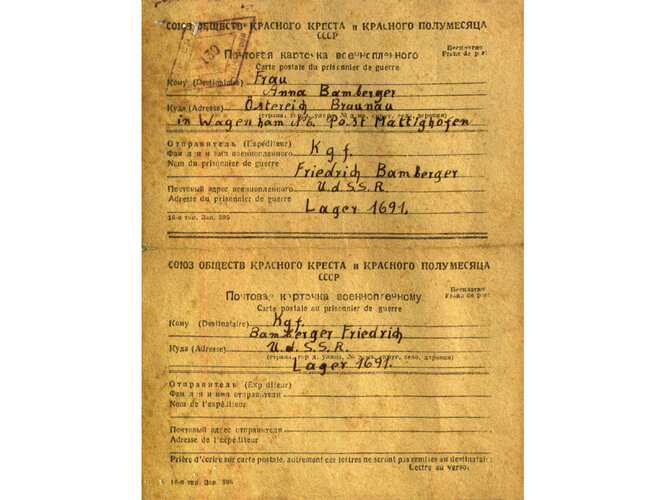 СОЮЗ ОБЩЕСТВ КРАСНОГО КРЕСТА и КРАСНОГО ПОЛУМЕСЯЦА
СССР
Почтовая карточка военнопленного
Бесплатно
Carte postale du prisonnier de guerre
Franc de port
Кому (Destinataire) Frau
Anna Bamberger
Куда (Adresse) Östereich Braunau
(страна, город, улица, № дома, округ, село, деревня)
in Wagenham №6. Post Mattighofen
Отправитель (Expéditeur)
Фамилия и имя военнопленного Kgf.
Nom du prisonnier de guerre Friedrich Bamberger
Почтовый адрес военнопленного U.d.S.S.R.
Adresse du prisonnier de guerre
Lager 1691.
16-я тип. Зак. 595
СОЮЗ ОБЩЕСТВ КРАСНОГО КРЕСТА и КРАСНОГО ПОЛУМЕСЯЦА
СССР
Почтовая карточка военнопленному
Бесплатно
Carte postale au prisonnier de guerre
Franc de port
Кому (Destinataire) Kgf.
Bamberger Friedrich
Куда (Adresse) U.d.S.S.R.
(страна, город, улица, № дома, округ, село, деревня)
Lager 1691.
Отправитель (Expéditeur)
Фамилия и имя отправителя
Nom de l'expéditeur
Почтовый адрес отправителя
Adresse de l'expéditeur
Prière d'écrire sur carte postale, autrement ces lettres ne seront pas remises au destinataire
Lettre au verso.
16-я тип. Зак. 595